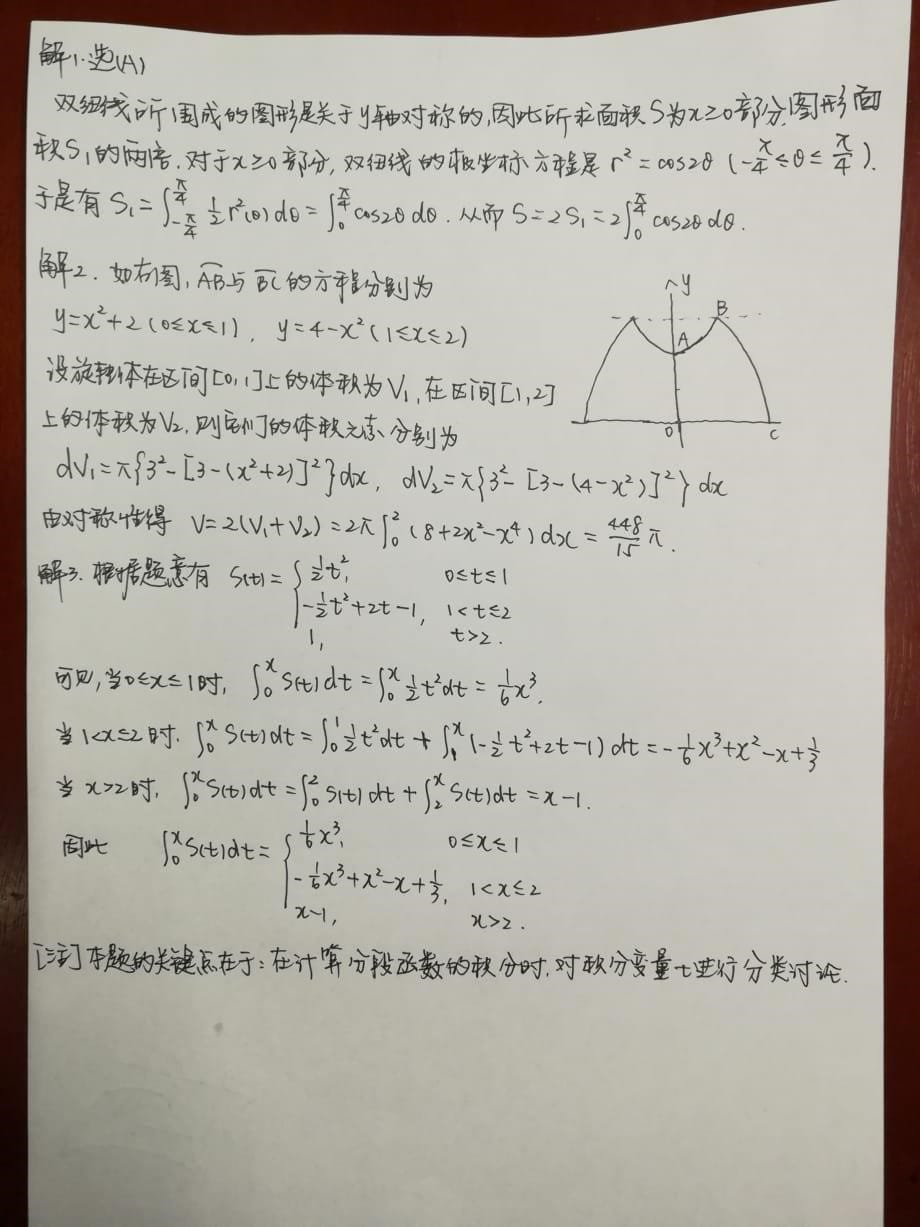 解1.选(A)
双纽线所围成的图形是关于y轴对称的,因此所求面积S为x≥0部分图形面
积S₁的两倍.对于x≥0部分,双纽线的极坐标方程是 r²=cos2θ (-π/4≤θ≤π/4).
于是有 S₁=∫_{-π/4}^{π/4} 1/2 r²(θ)dθ=∫_0^{π/4} cos2θdθ. 从而 S=2S₁=2∫_0^{π/4} cos2θdθ.
解2. 如右图, AB与BC的方程分别为
y=x²+2(0≤x≤1), y=4-x²(1≤x≤2)
设旋转体在区间[0,1]上的体积为V₁,在区间[1,2]
上的体积为V₂,则它们的体积元素分别为
y
B
A
O
C
dV₁=π{3²-[3-(x²+2)]²}dx, dV₂=π{3²-[3-(4-x²)]²}dx
由对称性得 V=2(V₁+V₂)=2π∫_0^2 (8+2x²-x⁴)dx=448/15 π.
解3. 根据题意有 S(t)={ 1/2 t², 0≤t≤1
-1/2 t²+2t-1, 1<t≤2
1, t>2.
可见,当0≤x≤1时, ∫_0^x S(t)dt=∫_0^x 1/2 t²dt=1/6 x³.
当1<x≤2时. ∫_0^x S(t)dt=∫_0^1 1/2 t²dt+∫_1^x (-1/2 t²+2t-1)dt=-1/6 x³+x²-x+1/3
当x>2时, ∫_0^x S(t)dt=∫_0^2 S(t)dt+∫_2^x S(t)dt=x-1.
因此 ∫_0^x S(t)dt={ 1/6 x³, 0≤x≤1
-1/6 x³+x²-x+1/3, 1<x≤2
x-1, x>2.
[注]本题的关键点在于:在计算分段函数的积分时,对积分变量t进行分类讨论.